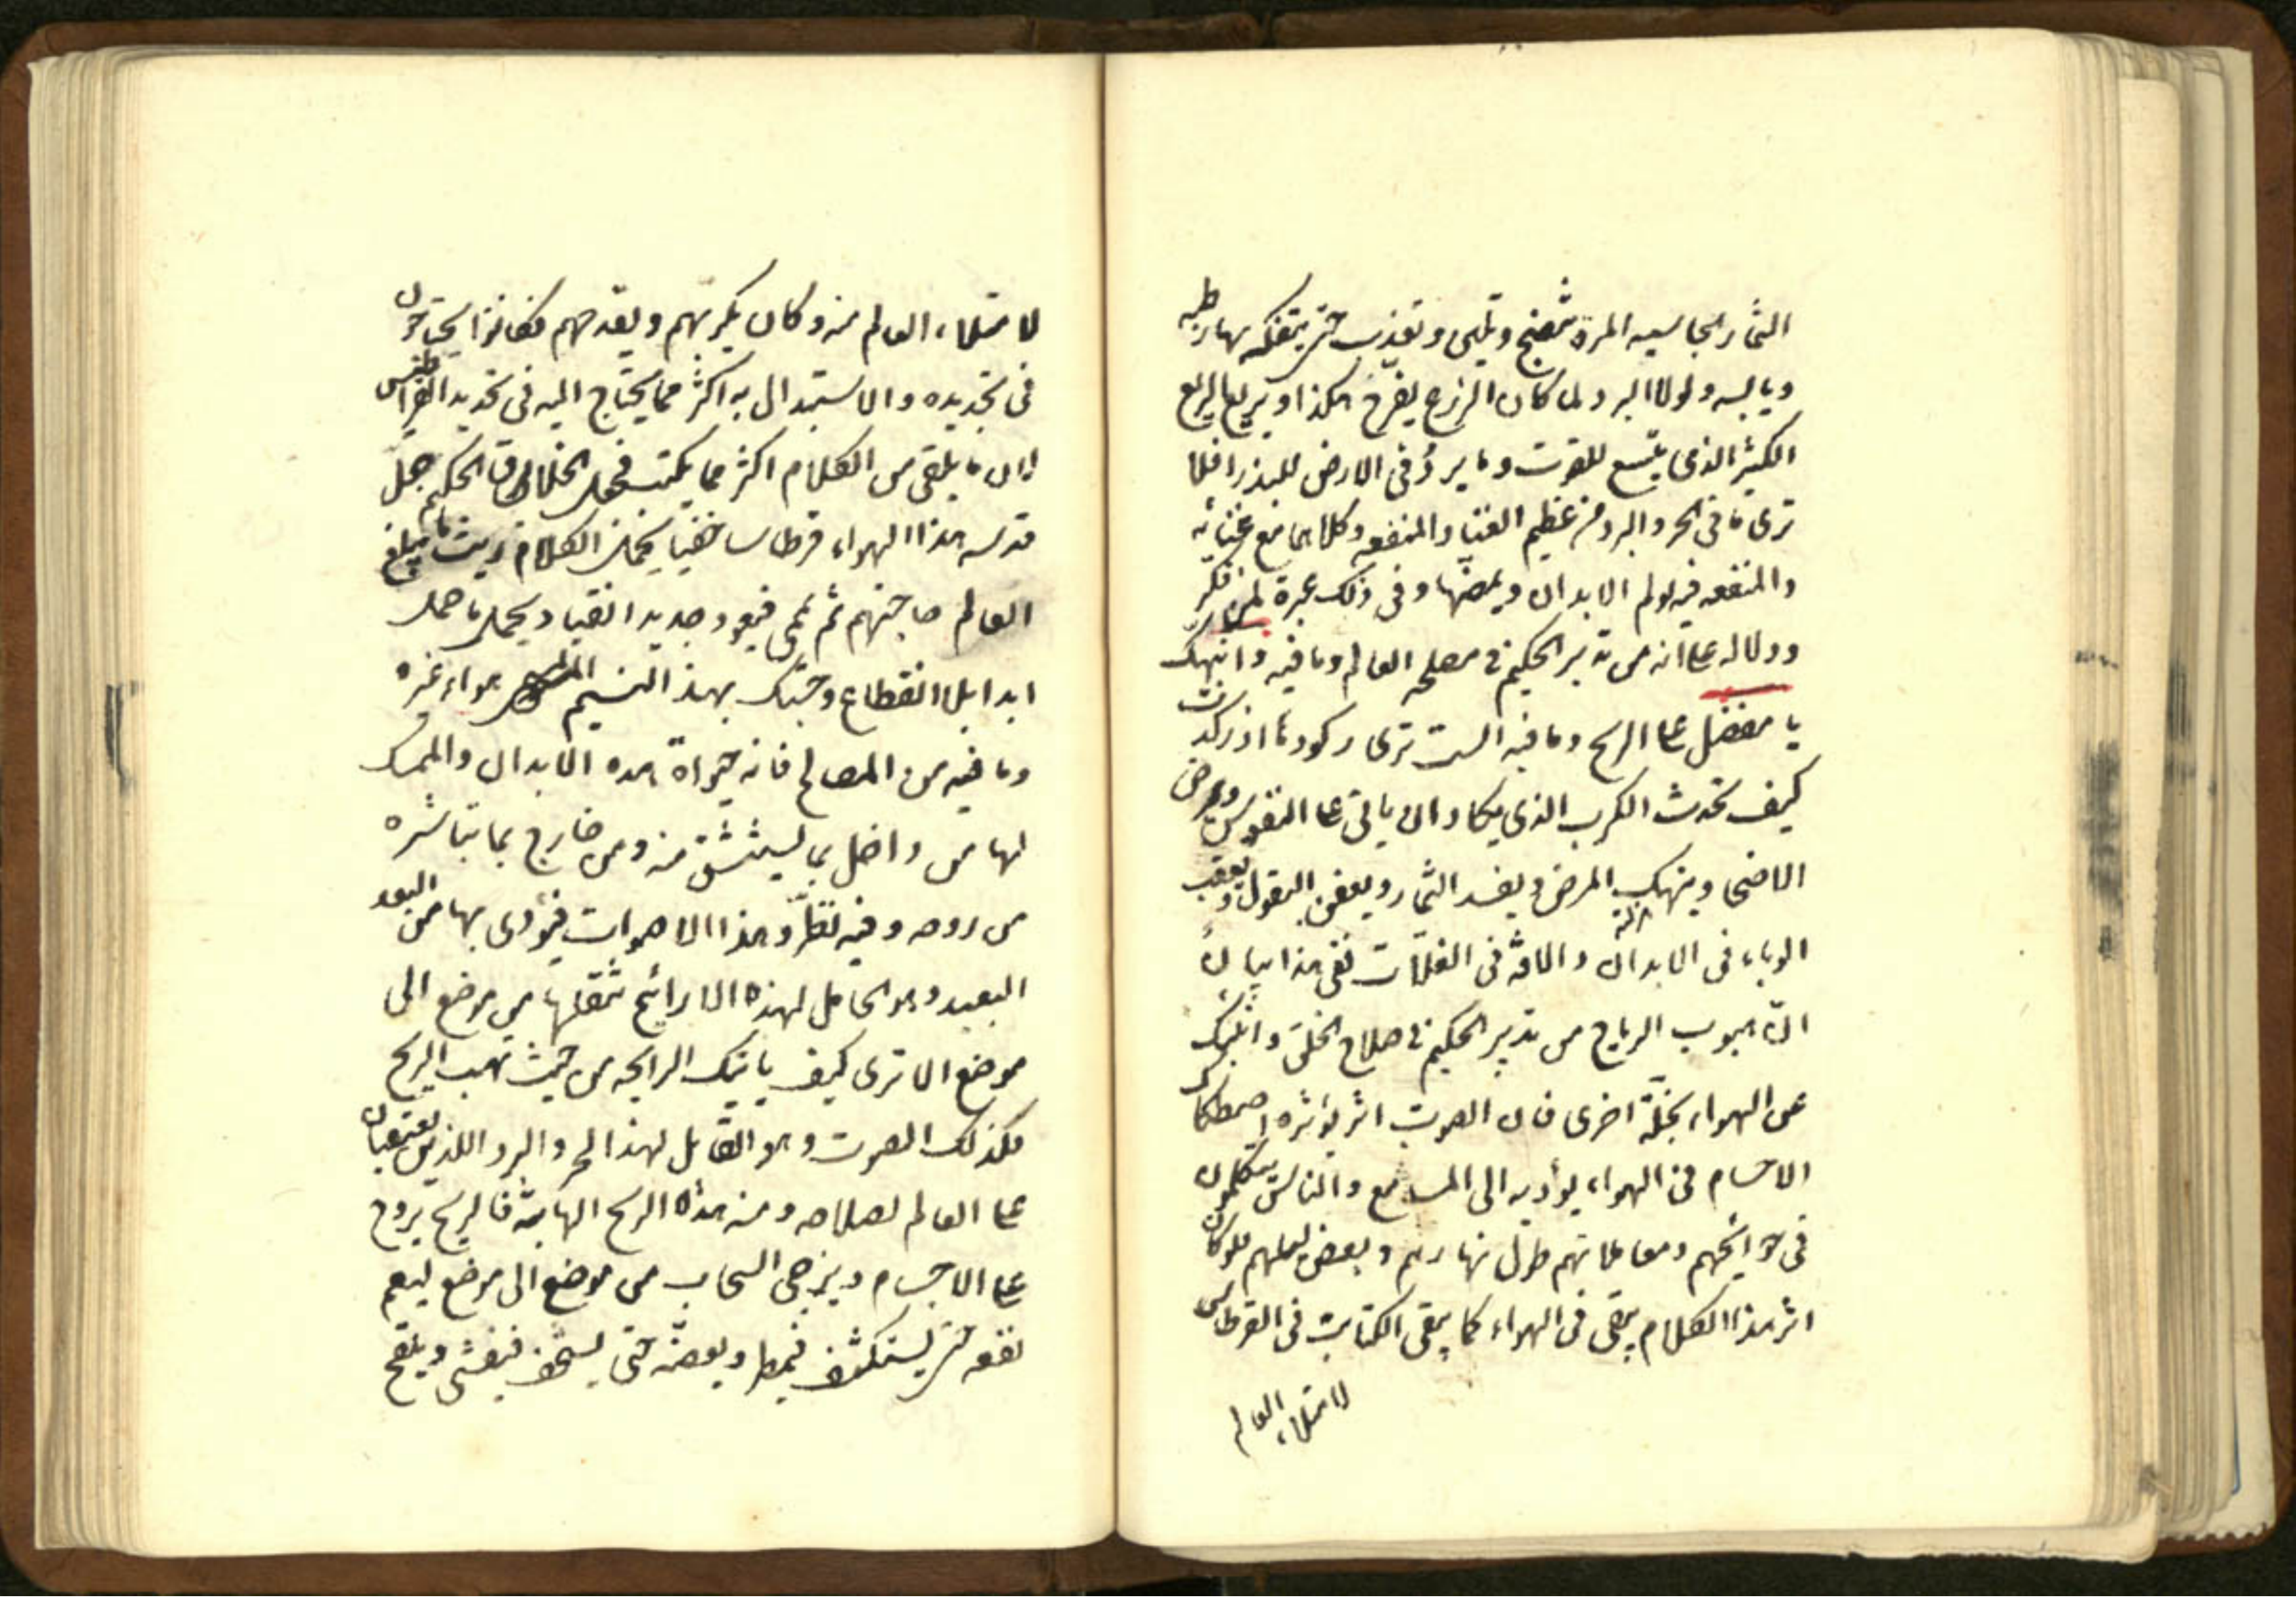 الثمار الجاسيه المرة فتنضج وتلين وتعذب حتى يتفكه بها رطبه
ويابسه ولولا البرد لما كان الزرع يفرخ هكذا ويريع الريع
الكثير الذى يتسع للقوت وما يرد فى الارض للبذر افلا
ترى ما فى الحر والبرد من عظيم الغنا والمنفعه وكلاهما مع غنائه
والمنفعه فيه يولم الابدان ويمضها وفى ذلك عبرة لمن فكر
ودلاله على انه من تدبير الحكيم فى مصلحه العالم وما فيه وانبهك
يا مفضل على الريح وما فيه الست ترى ركودها اذ ركدت
كيف تحدث الكرب الذى يكاد ان ياتى على النفوس ويمرض
الاصحا وينهك المرضى ويفسد الثمار ويعفن البقول ويعقب
الوباء فى الابدان والافة فى الغلات ففى هذا بيان
ان هبوب الرياح من تدبير الحكيم فى صلاح الخلق وانبئك
عن الهواء بخلّة اخرى فان الصوت اثر يؤثره اصطكاك
الاجسام فى الهواء يؤديه الى المسامع والناس يتكلمون
فى حوائجهم ومعاملاتهم طول نهارهم وبعض ليلهم فلو كان
اثر هذا الكلام يبقى فى الهواء كما يبقى الكتابت فى القرطاس
لامتلاء العالم
لامتلاء العالم منه وكان يكربهم ويفدحهم فكانوا يحتاجون
فى تجديده والاستبدال به اكثر مما يحتاج اليه فى تجديد القراطيس
لان ما يلقى من الكلام اكثر مما يكتب فجعل الخلاق الحكيم جل
قدسه هذا الهواء قرطاسا خفيا يحمل الكلام ريث ما يبلغ
العالم حاجتهم ثم يمحى فيعود جديدا نقيا ويحمل ما حمل
ابدا بلا انقطاع وحسبك بهذا النسيم المسمى هواء عبره
وما فيه من المصالح فانه حيواة هذه الابدان والممسك
لها من داخل بما يستنشق منه ومن خارج بما تباشره
من روحه وفيه تطرد هذا الاصوات فيؤدى بها من البعد
البعيد وهو الحامل لهذه الارائح ينقلها من موضع الى
موضع الا ترى كيف ياتيك الرايحه من حيث تهب الريح
فكذلك الصوت وهو القابل لهذا الحر والبرد اللذين يعتقبان
على العالم لصلاحه ومنه هذه الريح الهابة فالريح يروح
على الاجسام ويزجى السحاب من موضع الى موضع ليعم
نفعه حتى يستكثف فيمطر ويفضه حتى يستخف فيفشى ويلقح